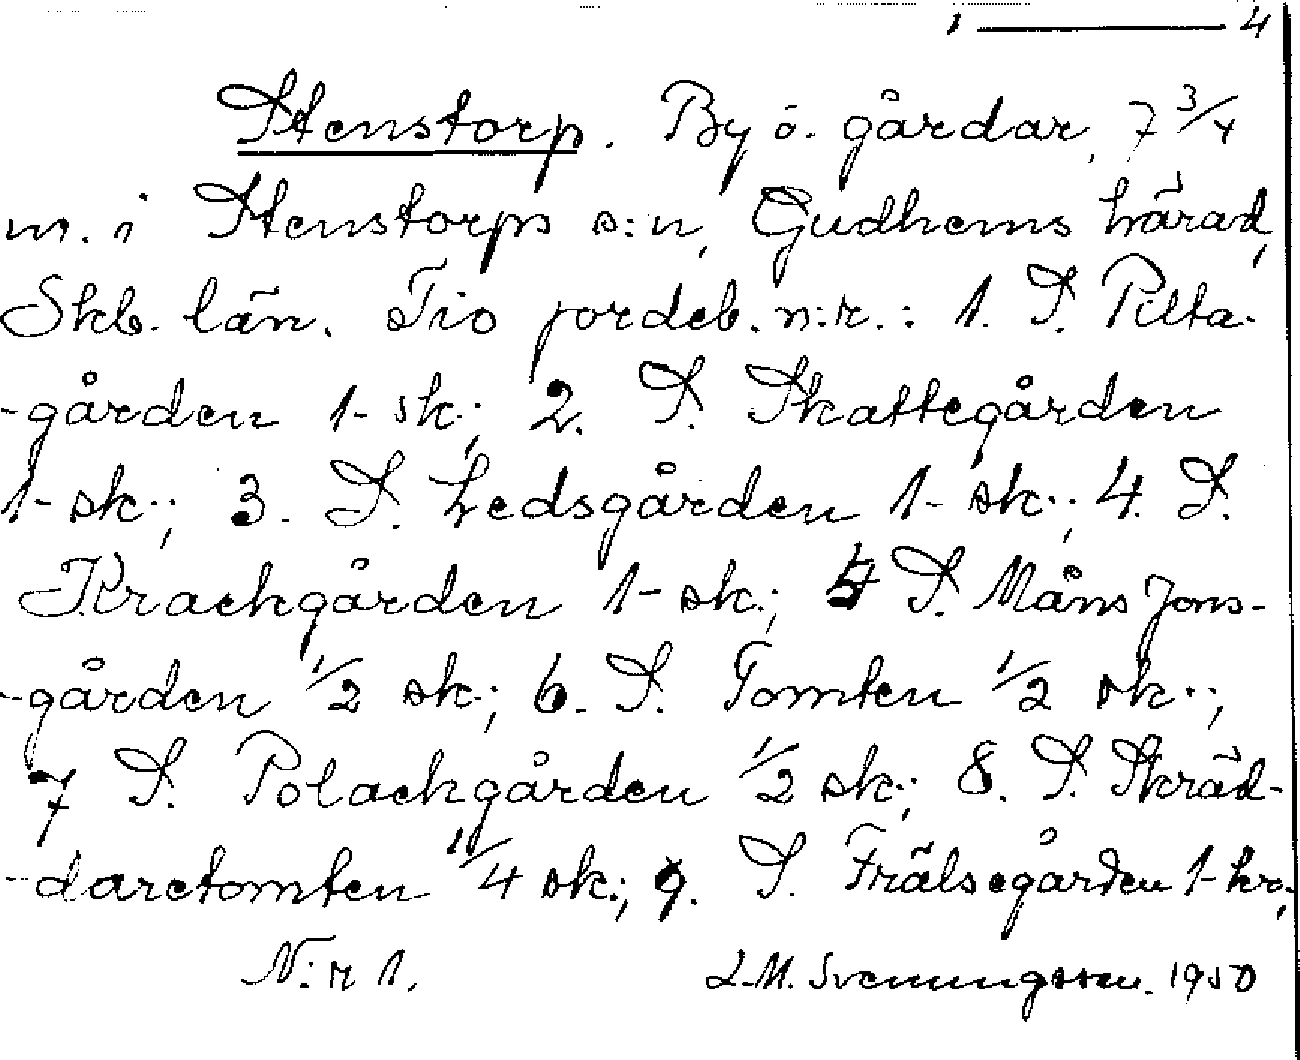 1 — 4
Stenstorp. By ö. gårdar, 7 3/4
m. i Stenstorps s:n, Gudhems härad,
Skb. län. Tio jordeb. n:r.: 1. S. Pilta-
-gården 1- sk.; 2. S. Skattegården
1- sk.; 3. S. Ledsgården 1- sk.; 4. S.
Krackgården 1- sk.; 5 S. Måns Jons-
-gården 1/2 sk.; 6. S. Tomten 1/2 sk.;
7 S. Polackgården 1/2 sk.; 8. S. Skräd-
-daretomten 1/4 sk.; 9. S. Frälsegården 1- kr.;
N:r 1. L.M. Svenungsson. 1950